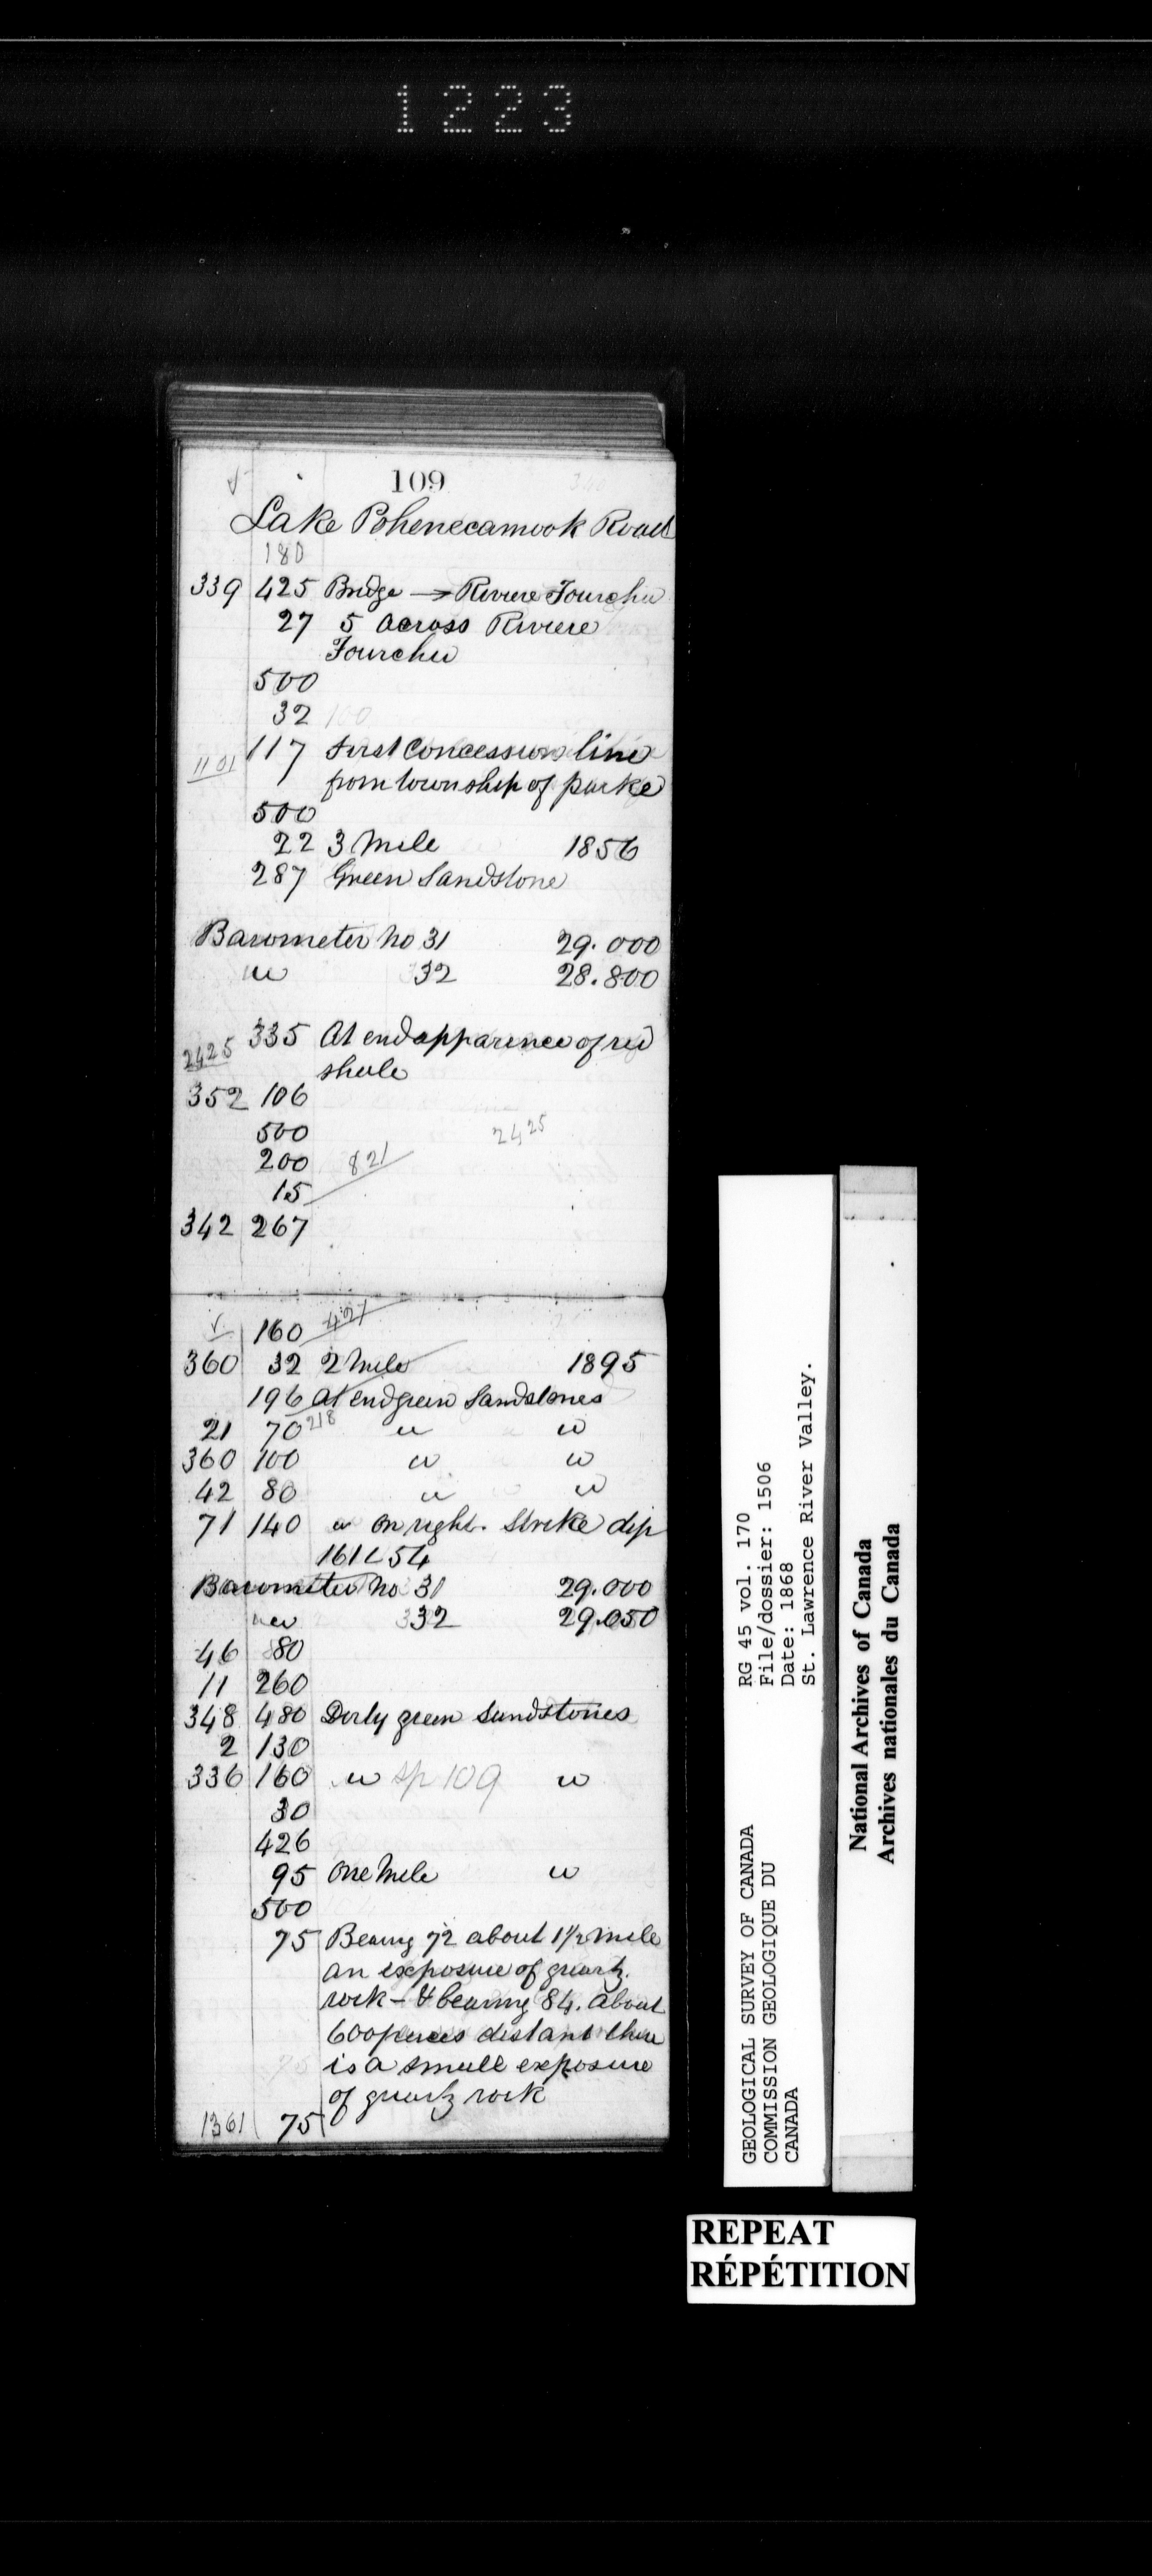 1223
109
Lake Pohenecamook Road
180
339 425 Bridge → Riviere Fourchu
27 5 across Riviere
Fourchu
500
32 100
117 first Concession line
1101
from township of parke
500
22 3 Mile 1856
287 Green Sandstone
Barometer no 31 29.000
" 332 28.800
335 At end apparence of red
2425
shale
352 106
500 2425
200 821
15
342 267
160 427
360 32 2 Mile 1895
196 at end green Sandstones
21 70 218 " "
360 100 " "
42 80 " "
71 140 " on right. Strike dip
161 L 54
Barometer no 31 29.000
" 332 29.050
46 80
11 260
348 480 Dirly green Sandstones
2 130
336 160 " sp 109 "
30
426
95 One Mile "
500
75 Bearing 72 about 1½ mile
an exposure of quartz.
rock - & bearing 84. about
600 paces distant there
is a small exposure
of quartz rock
1361 75
GEOLOGICAL SURVEY OF CANADA
COMMISSION GEOLOGIQUE DU
CANADA
RG 45 vol. 170
File/dossier: 1506
Date: 1868
St. Lawrence River Valley.
National Archives of Canada
Archives nationales du Canada
REPEAT
RÉPÉTITION